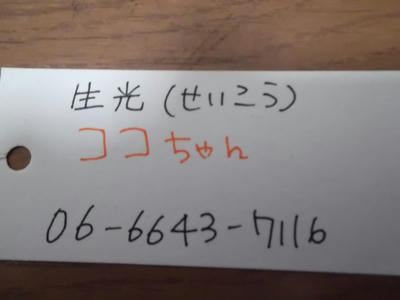 生光(せいこう)
ココちゃん
06-6643-7116